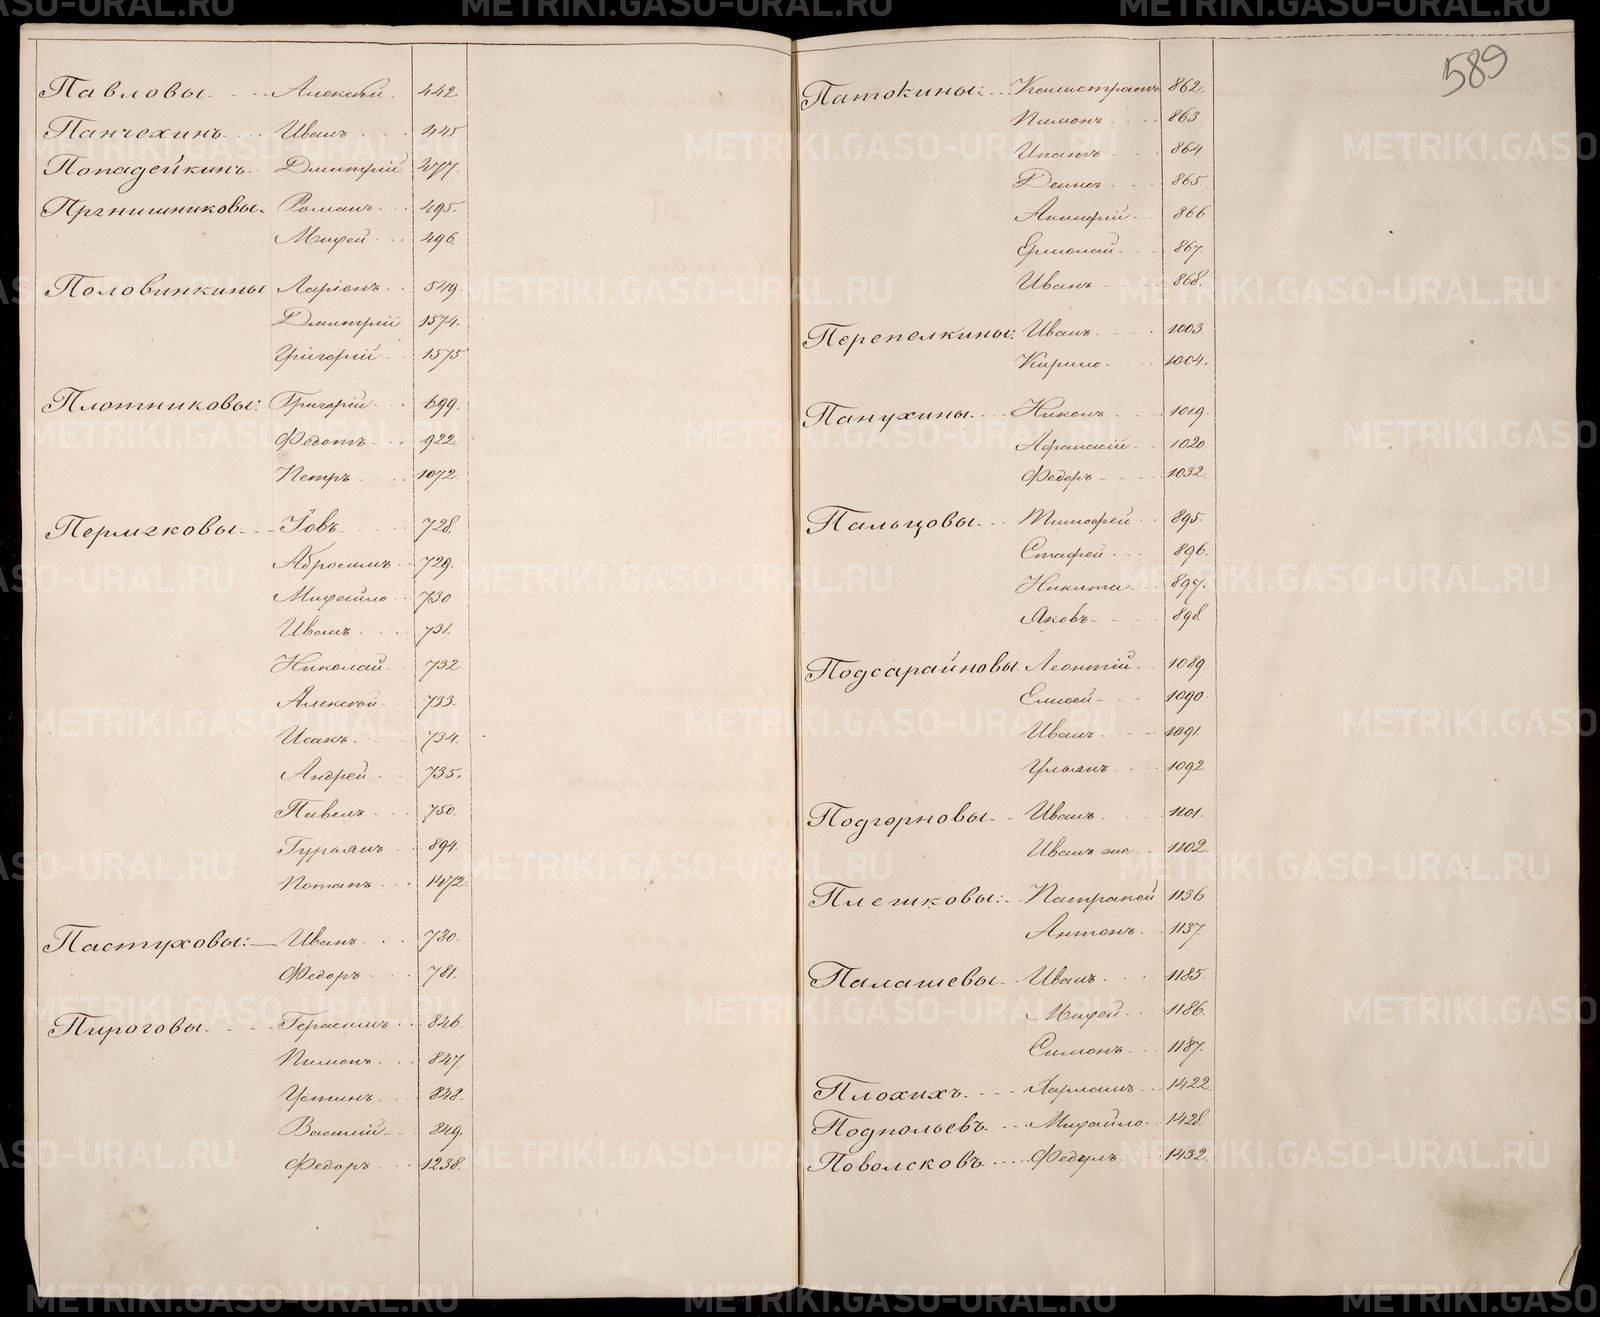 Павловы. Алексѣй. 442
Панчехинъ. Иванъ 445
Попадейкинъ. Дмитрій 477.
Прянишниковы. Романъ. 495.
Мафей 496.
Половинкины Ларіонъ. 549.
Дмитрій 1574.
Григорій 1575
Плотниковы: Григорій 699.
Федотъ 922.
Петръ 1072.
Пермяковы Іовъ 728.
Абросимъ 729.
Михайло 730
Иванъ 731.
Николай 732
Алексѣй 733.
Исакъ. 734.
Андрей 735.
Павелъ 750.
Гурьянъ 894.
Потапъ 1472.
Пастуховы: Иванъ 780.
Федоръ 781.
Пироговы. Герасимъ 846.
Пимонъ. 847.
Устинъ. 848.
Василій 849.
Федоръ 1238.
589
Патокины: Калистратъ 862.
Пимонъ. 863.
Ипатъ. 864
Денисъ 865.
Акинфій 866
Ермолай 867.
Иванъ 868.
Перепелкины: Иванъ. 1003.
Кирило. 1004.
Панухины. Никонъ. 1019.
Афанасій 1020.
Федоръ 1032.
Пальцовы. Тимофей 895.
Стафей 896.
Никита 897.
Яковъ 898.
Подсарайновы Леонтій. 1089
Елисей 1090.
Иванъ. 1091.
Ульянъ 1092
Подгорновы. Иванъ 1101.
Иванъ же 1102.
Плешковы: Патракей 1136
Антонъ. 1137.
Палашевы. Иванъ. 1185.
Мафей 1186.
Симонъ. 1187.
Плохихъ. Харламъ 1422.
Подпольевъ. Михайло. 1428.
Поволсковъ Федулъ. 1432.
METRIKI.GASO-URAL.RU